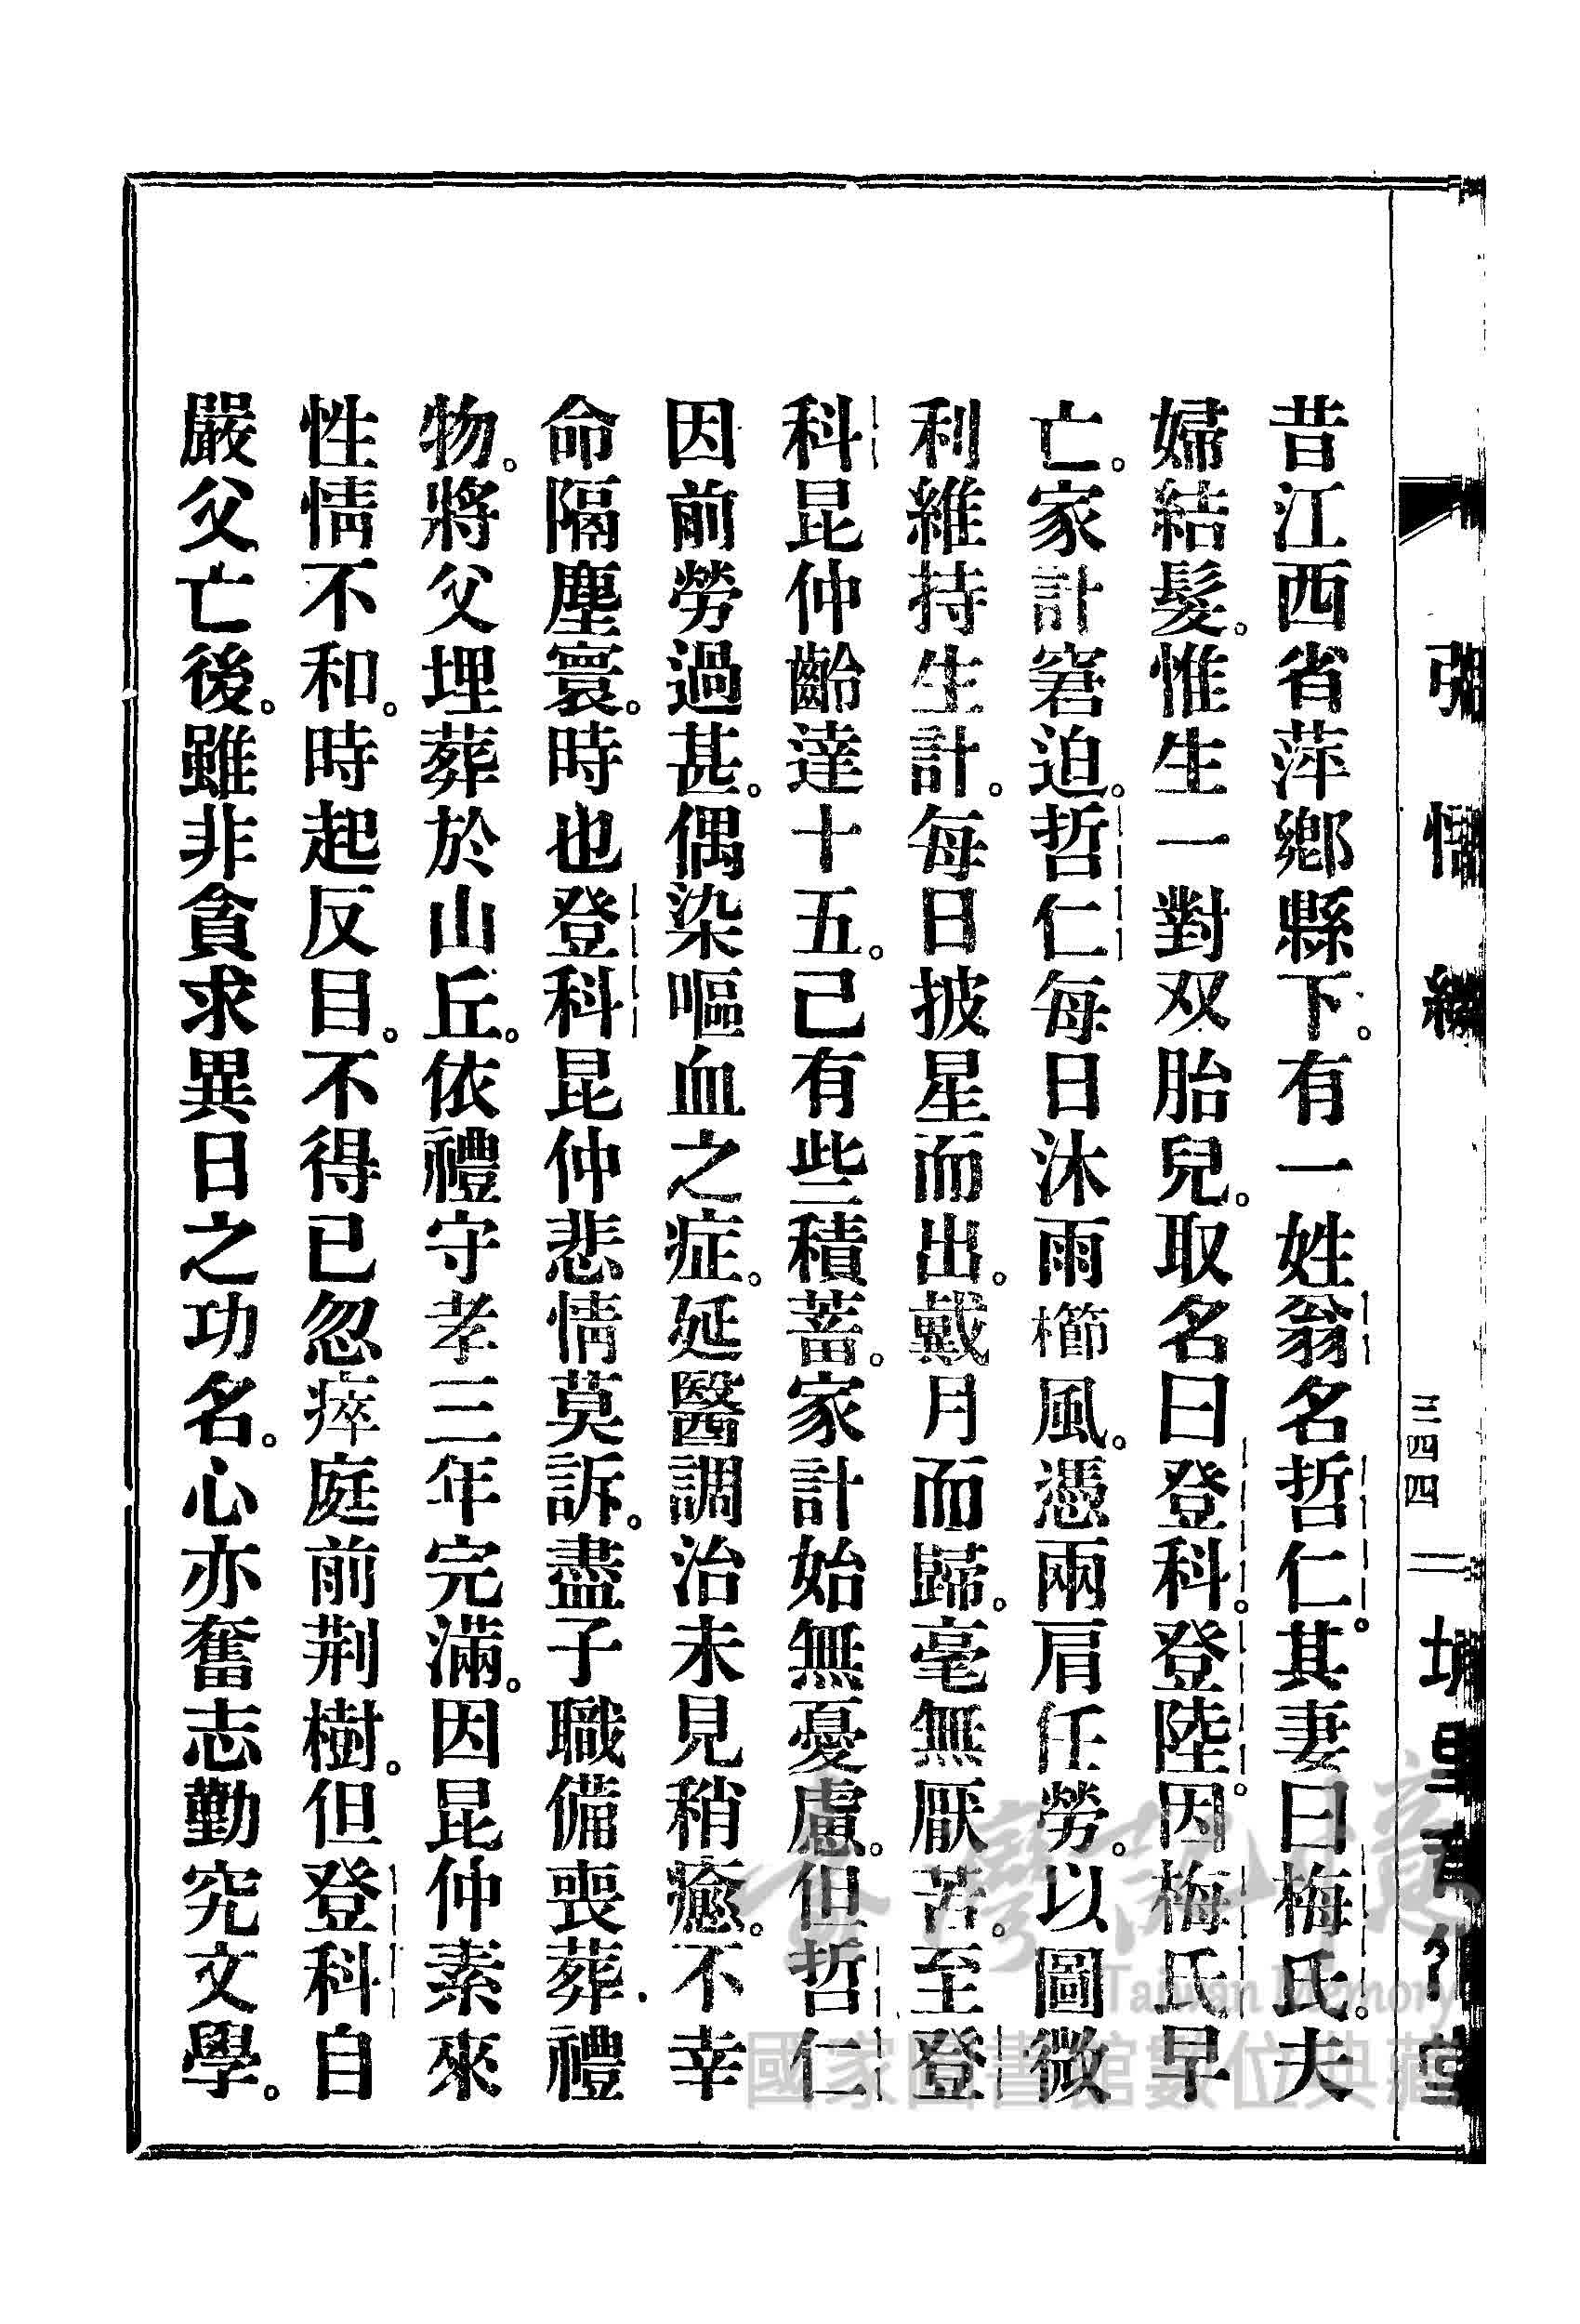 昔江西省萍鄉縣下。有一姓翁名哲仁。其妻曰梅氏。夫
婦結髮。惟生一對双胎兒。取名曰登科。登陸。因梅氏早
亡。家計窘迫。哲仁每日沐雨櫛風。憑兩肩任勞。以圖微
利維持生計。每日披星而出。戴月而歸。毫無厭苦。至登
科昆仲齡達十五。己有些積蓄。家計始無憂慮。但哲仁
因前勞過甚。偶染嘔血之症。延醫調治未見稍癒。不幸
命隔塵寰。時也登科昆仲悲情莫訴。盡子職備喪葬.禮
物。將父埋葬於山丘。依禮守孝三年完滿。因昆仲素來
性情不和。時起反目。不得已忽瘁庭前荆樹。但登科自
嚴父亡後。雖非貪求異日之功名。心亦奮志勤究文學。
三四四
Taiwan Memory
國家圖書館數位典藏